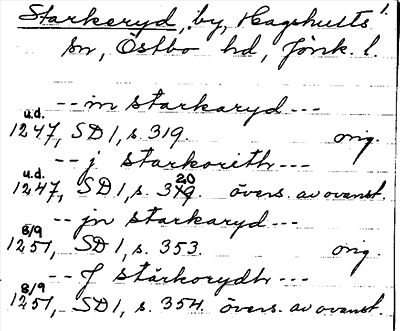 Starkeryd, by, Hagshults 1.
sn, Östbo hd, Jönk. l.
-- in starkaryd ---
u.d.
1247, SD 1, s. 319. orig.
-- j starkorith ---
u.d. 20
1247, SD 1, s. 319. övers. av ovanst.
-- jn starkaryd ---
8/9
1251, SD 1, s. 353. orig.
-- J stårkorydh ---
8/9
1251, SD 1, s. 354. övers. av ovanst.